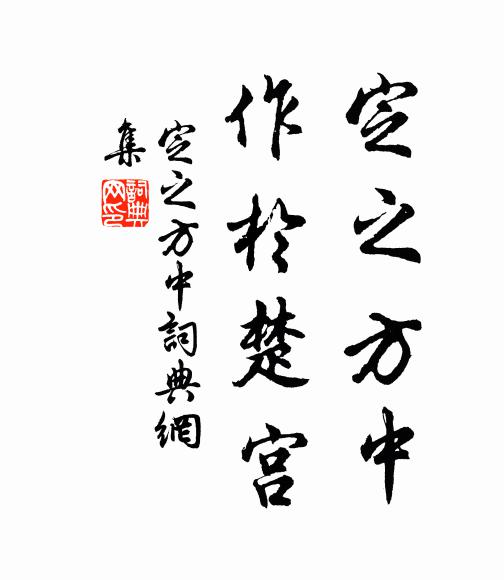 定之方中
作於楚宫
定之方中詞典網
集
詞典网印